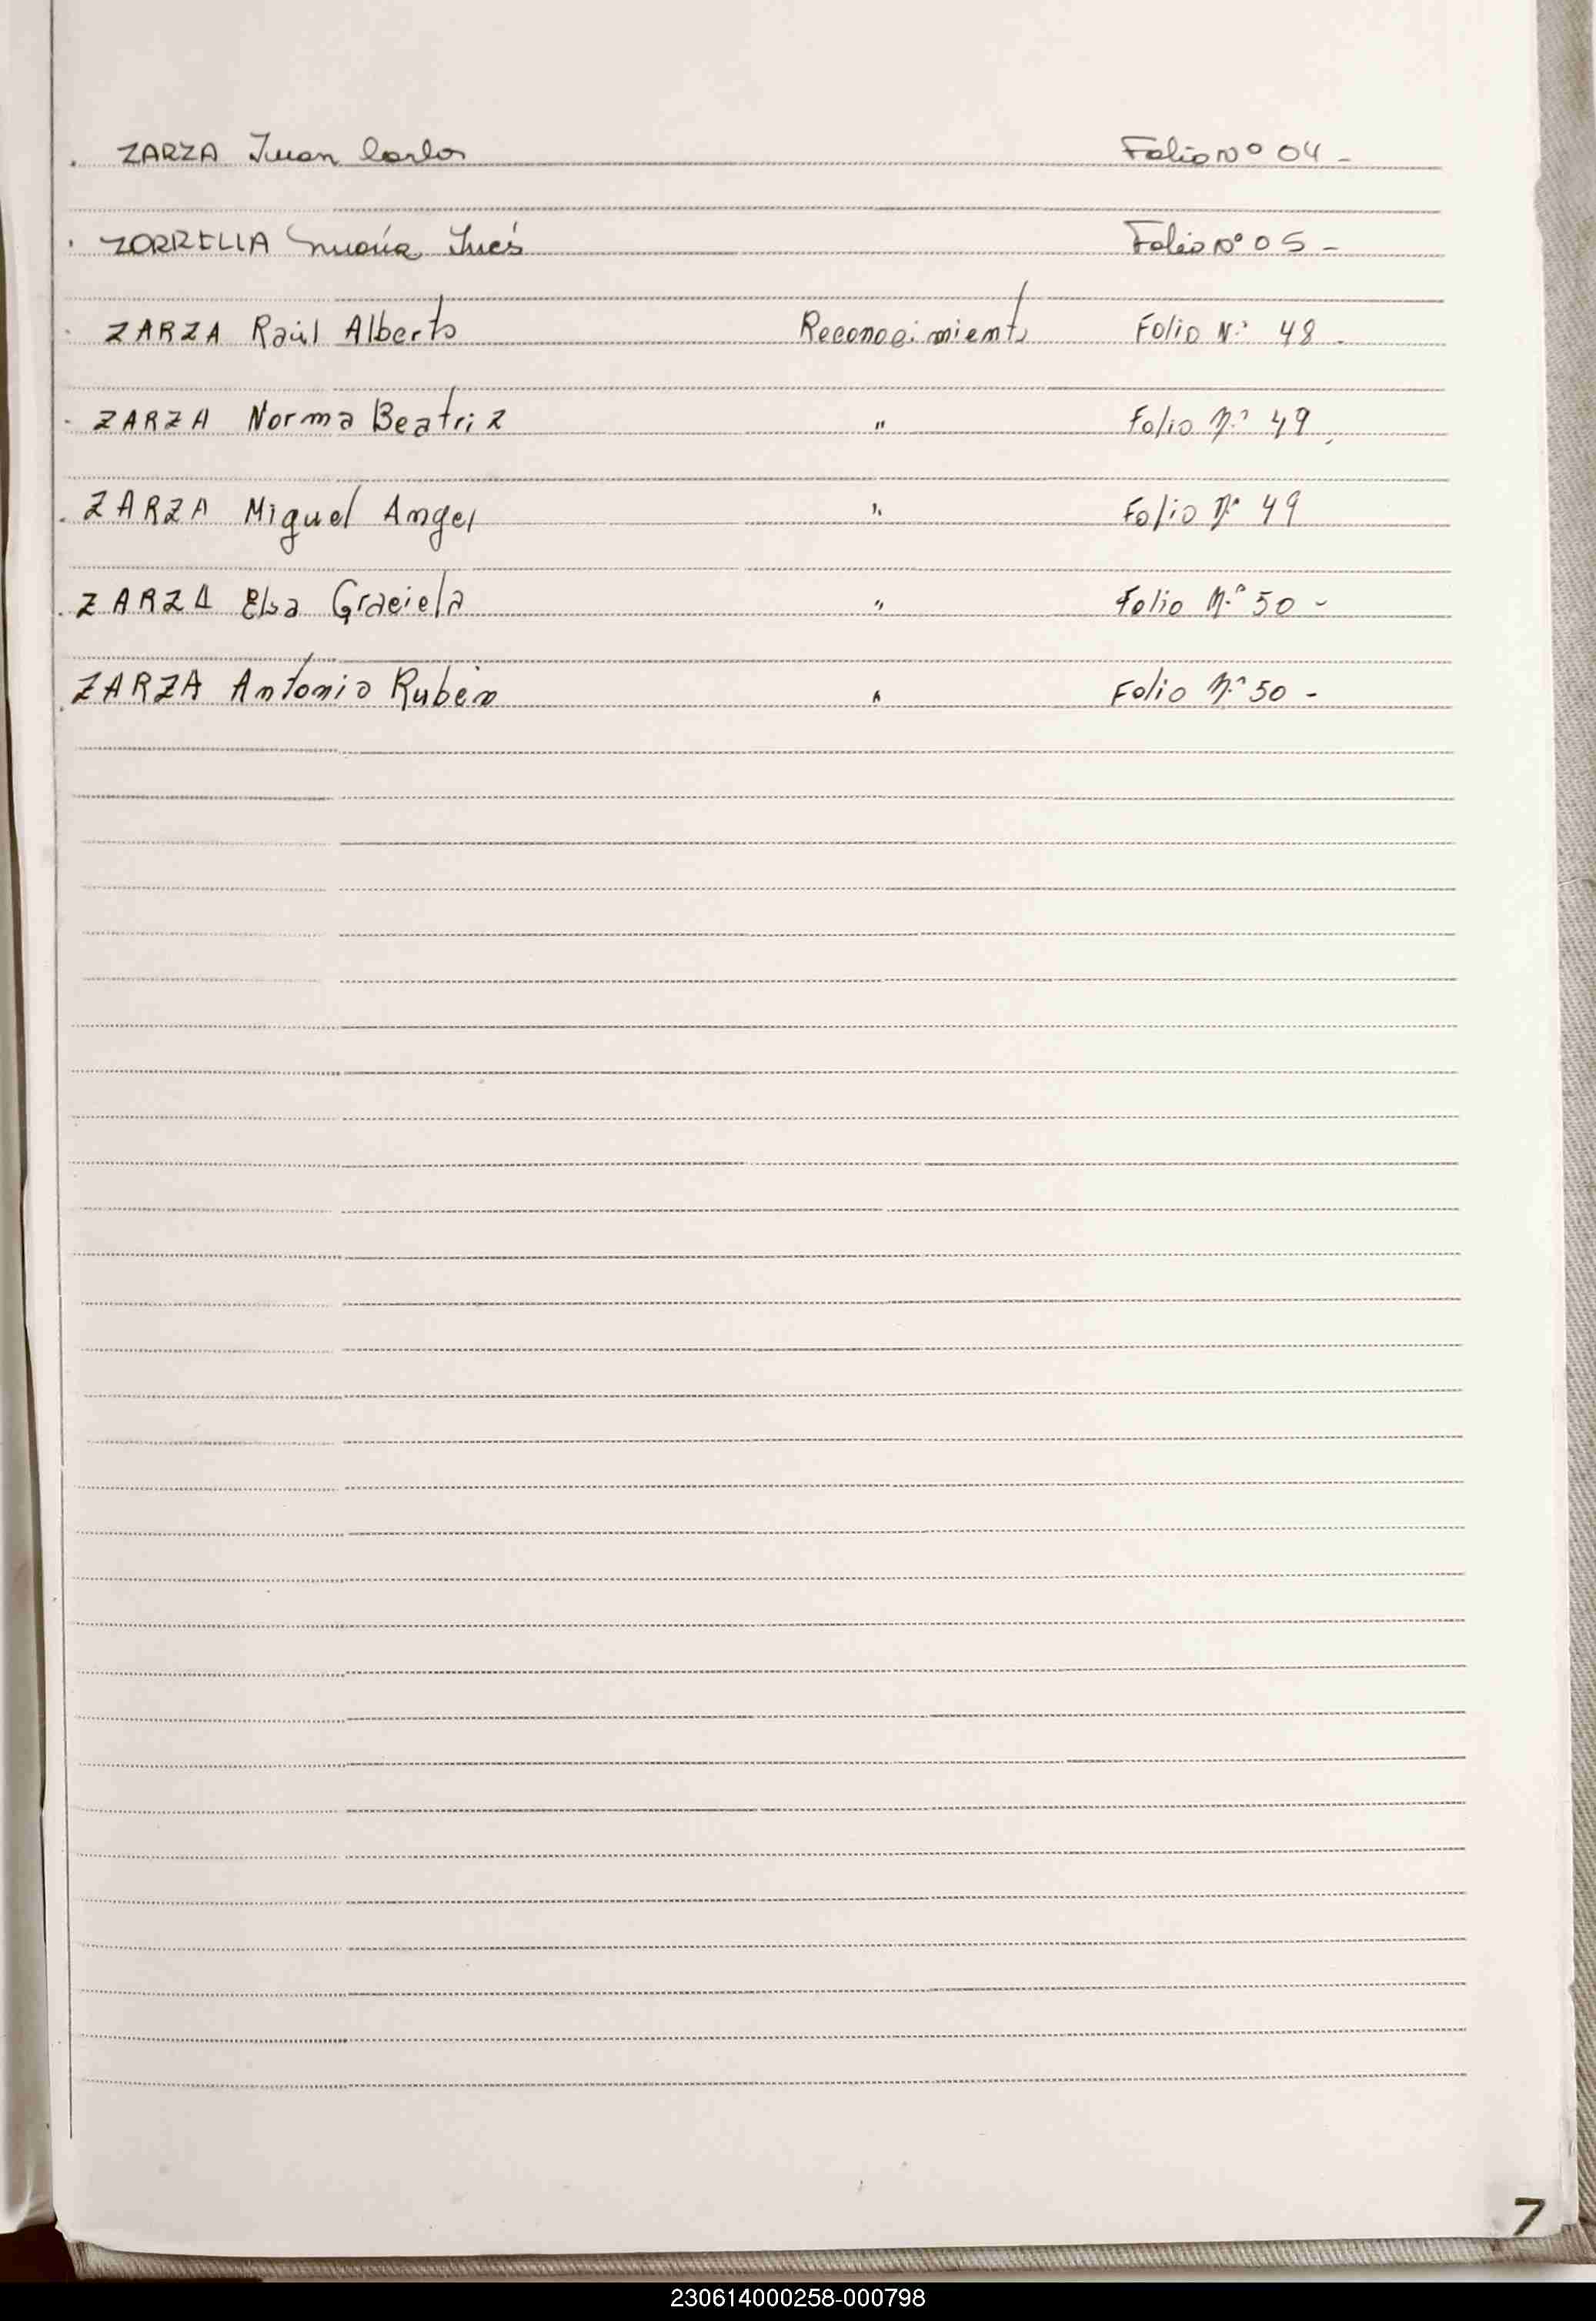 . ZARZA Juan Carlos Folio Nº 04 -
. ZORRELLA María Inés Folio Nº 05 -
- ZARZA Raúl Alberto Reconocimiento Folio N.º 48 -
- ZARZA Norma Beatriz " Folio N.º 49 -
. ZARZA Miguel Angel " Folio N.º 49
. ZARZA Elsa Graciela " Folio N.º 50 -
. ZARZA Antonio Rubén " Folio N.º 50 -
7
230614000258-000798